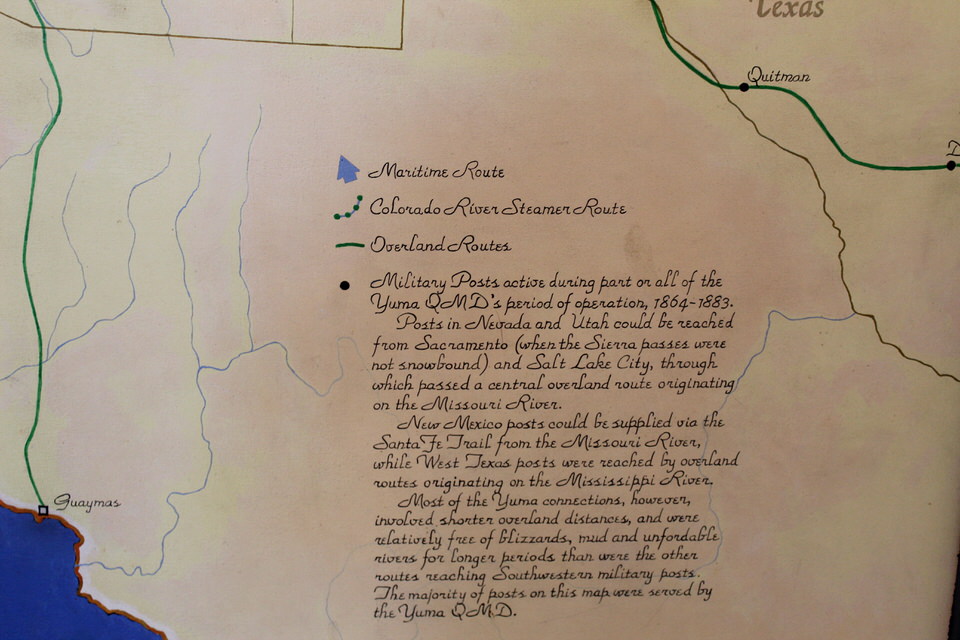 Texas
Quitman
Maritime Route
Colorado River Steamer Route
Overland Routes
Military Posts active during part or all of the
Yuma Q.M.D.'s period of operation, 1864-1883.
Posts in Nevada and Utah could be reached
from Sacramento (when the Sierra passes were
not snowbound) and Salt Lake City, through
which passed a central overland route originating
on the Missouri River.
New Mexico posts could be supplied via the
Santa Fe Trail from the Missouri River,
while West Texas posts were reached by overland
routes originating on the Mississippi River.
Most of the Yuma connections, however,
involved shorter overland distances, and were
relatively free of blizzards, mud and unfordable
rivers for longer periods than were the other
routes reaching Southwestern military posts.
The majority of posts on this map were served by
the Yuma Q.M.D.
Guaymas